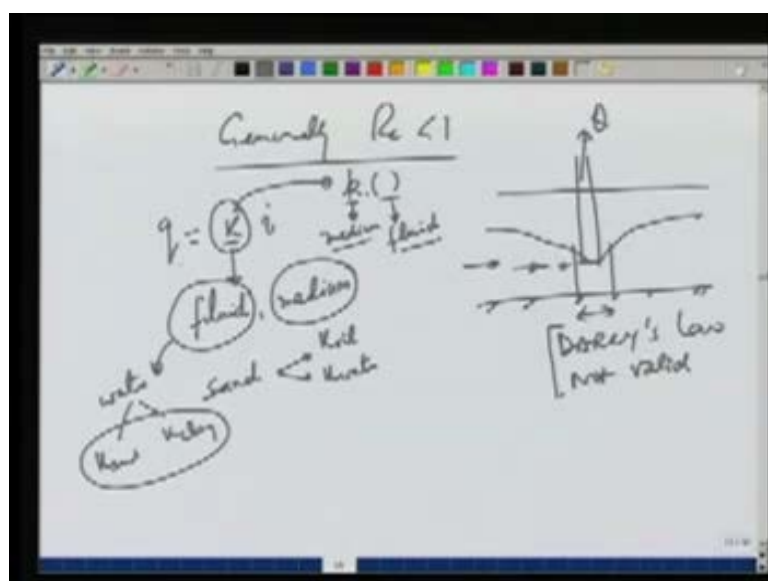 Generally Re < 1
q = K i
k. ( )
medium fluid
fluid, medium
water
sand
Koil
Kwater
Ksand Kclay
Q
DARCY's law
Not valid